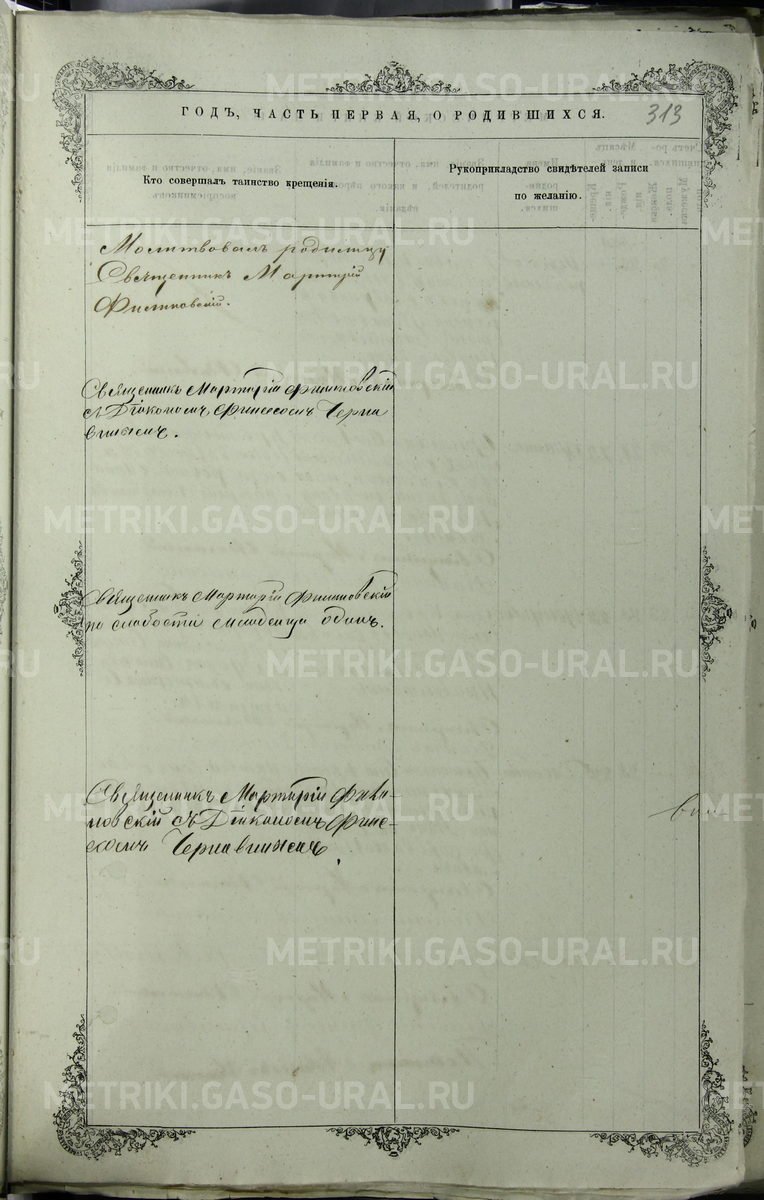 ГОДЪ, ЧАСТЬ ПЕРВАЯ, О РОДИВШИХСЯ.
313
Кто совершалъ таинство крещенія.
Рукоприкладство свидѣтелей записи
по желанію.
Молитвовалъ родилицу
Священникъ Мартирій
Филиповскій.
Священникъ Мартирій Филиповскій
съ Діакономъ
Священникъ Мартирій Филиповскій
по слабости младенца одинъ.
Священникъ Мартирій Фили-
повскій съ Діакономъ
METRIKI.GASO-URAL.RU